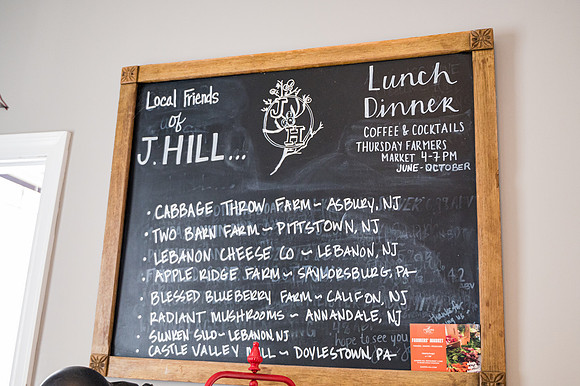 Local Friends
of
J. HILL...
J
&
H
Lunch
Dinner
COFFEE & COCKTAILS
THURSDAY FARMERS
MARKET 4-7 PM
JUNE-OCTOBER
• CABBAGE THROW FARM ~ ASBURY, NJ
• TWO BARN FARM ~ PITTSTOWN, NJ
• LEBANON CHEESE CO ~ LEBANON, NJ
• APPLE RIDGE FARM ~ SAYLORSBURG, PA
• BLESSED BLUEBERRY FARM ~ CALIFON, NJ
• RADIANT MUSHROOMS ~ ANNANDALE, NJ
• SUNKEN SILO ~ LEBANON NJ
• CASTLE VALLEY MILL ~ DOYLESTOWN PA
hope to see you
FARMERS' MARKET